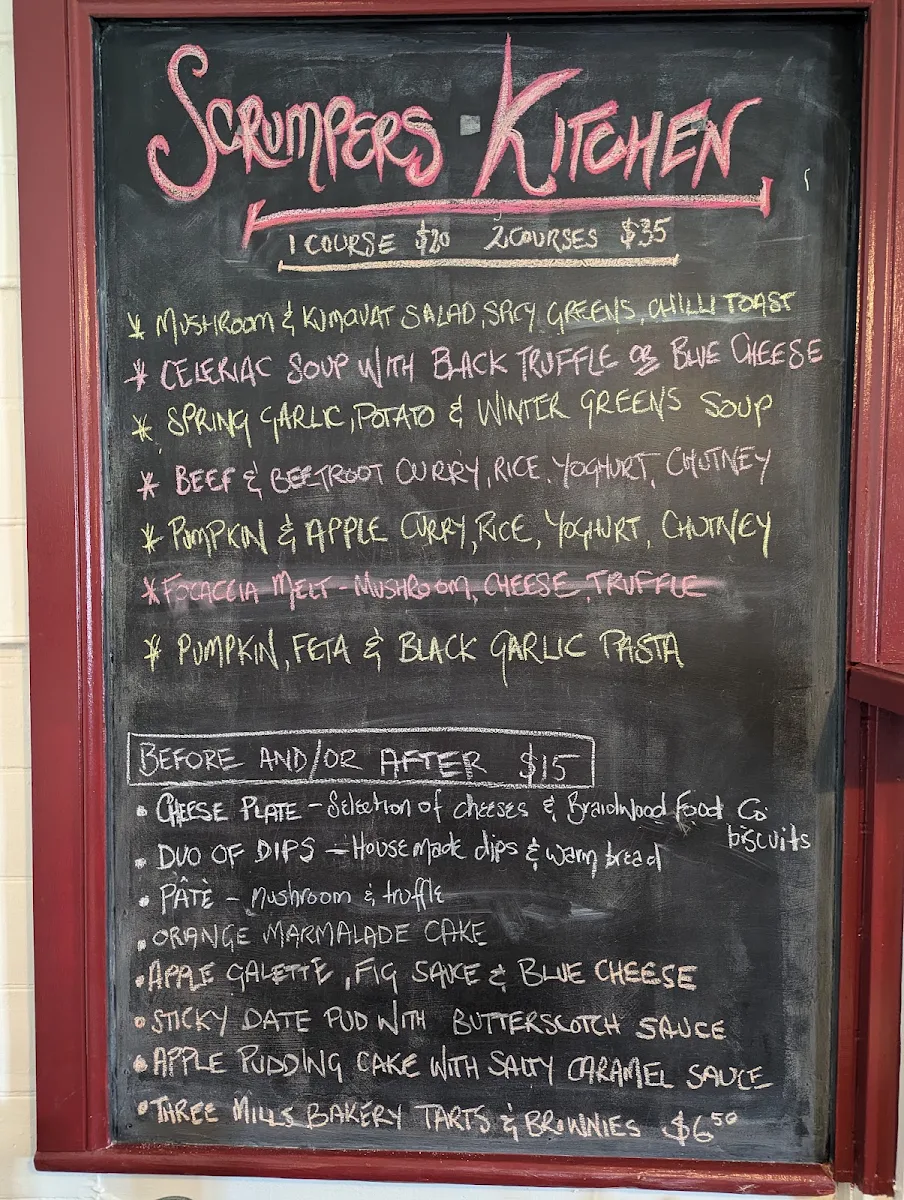 SCRUMPERS KITCHEN
1 COURSE $20 2 COURSES $35
* MUSHROOM & KUMQUAT SALAD, SPICY GREENS, CHILLI TOAST
* CELERIAC SOUP WITH BLACK TRUFFLE OR BLUE CHEESE
* SPRING GARLIC, POTATO & WINTER GREENS SOUP
* BEEF & BEETROOT CURRY, RICE, YOGHURT, CHUTNEY
* PUMPKIN & APPLE CURRY, RICE, YOGHURT, CHUTNEY
* FOCACCIA MELT - MUSHROOM, CHEESE, TRUFFLE
* PUMPKIN, FETA & BLACK GARLIC PASTA
BEFORE AND/OR AFTER $15
• CHEESE PLATE - Selection of cheeses & Braidwood Food Co
biscuits
• DUO OF DIPS - House made dips & warm bread
• PÂTÈ - Mushroom & truffle
• ORANGE MARMALADE CAKE
• APPLE GALETTE, FIG SAUCE & BLUE CHEESE
• STICKY DATE PUD WITH BUTTERSCOTCH SAUCE
• APPLE PUDDING CAKE WITH SALTY CARAMEL SAUCE
• THREE MILLS BAKERY TARTS & BROWNIES $6⁵⁰